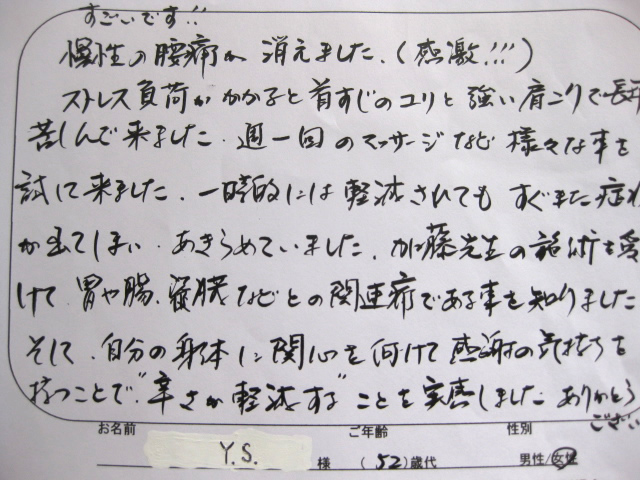 すごいです!!
慢性の腰痛が消えました.(感激!!!)
ストレス負荷がかかると首すじのコリと強い肩こりで長年
苦しんで来ました.週一回のマッサージなど様々な事を
試して来ました.一時的には軽減されてもすぐまた症状
が出てしまい.あきらめていました.加藤先生の施術を受
けて.胃や腸、などとの関連痛である事を知りました
そして、自分の身体に関心を向けて感謝の気持ちを
持つことで"辛さが軽減する"ことを実感しましたありがとう
ござい
お名前 Y.S. 様 ご年齢 (52)歳代 性別 男性/女性